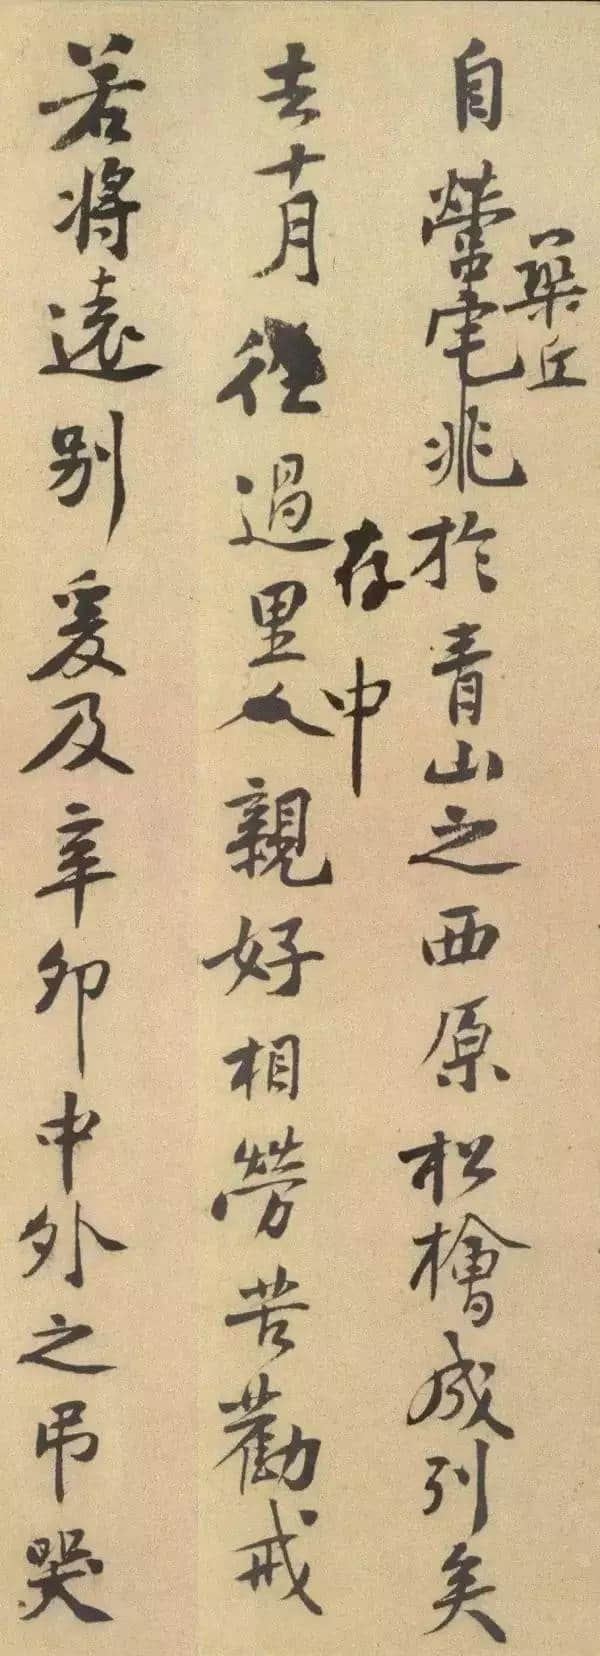 築丘
自營宅兆於青山之西原松檜成列矣
存中
去十月過里人親好相勞苦勸戒
若將遠別爰及辛卯中外之吊哭